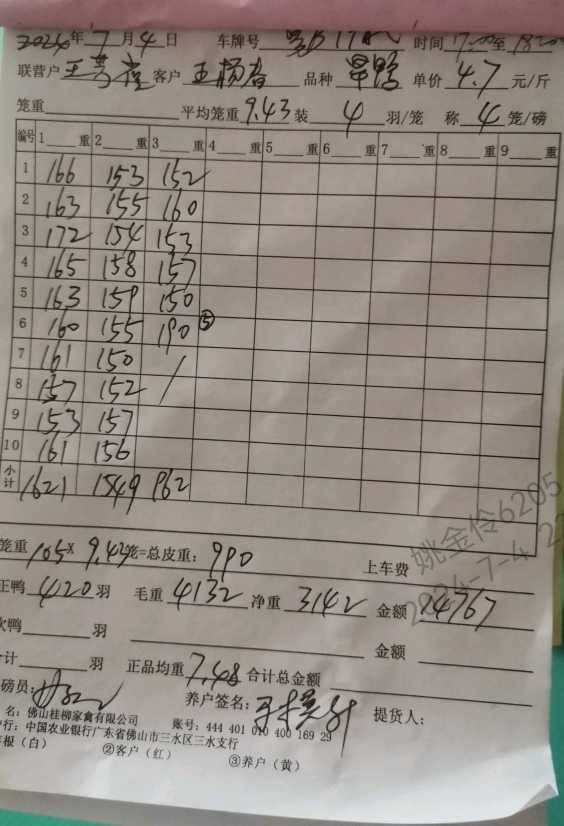 2024年 7 月 4 日 车牌号 时间 17:00至
联营户 客户 王杨春 品种 旱鸭 单价 4.7 元/斤
笼重 平均笼重 9.43 装 4 羽/笼 称 4 笼/磅
编号 1 重 2 重 3 重 4 重 5 重 6 重 7 重 8 重 9 重
1 166 153 152
2 163 155 160
3 172 154 153
4 165 158 157
5 163 159 150
6 160 155 190 ⑤
7 161 150 /
8 157 152
9 153 157
10 161 156
小计 1621 1549 962
笼重 105 X 9.43 笼=总皮重: 990 上车费
正鸭 420 羽 毛重 4132 净重 3142 金额 14767
次鸭 羽 金额
计 羽 正品均重 7.48 合计总金额
磅员: 养户签名: 提货人:
名: 佛山桂柳家禽有限公司 账号: 444 401 010 400 169 29
行: 中国农业银行广东省佛山市三水区三水支行
根(白) ②客户(红) ③养户(黄)
姚金伶6205
2024-7-4